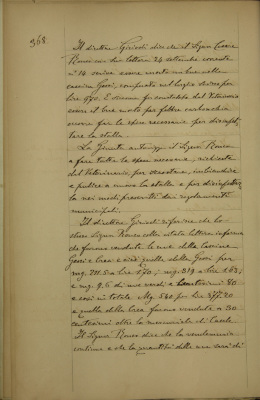 368.
Il direttore Girardi dice che il Signor Cesare
Ronco con sua lettera 24 settembre corrente
N. 14 scrive essere morto un bue nella
cascina Gorei, comprato nel luglio scorso per
lire 670. E siccome fu constatato dal Veterinario
essere il bue morto per febbre carbonchiosa
occorre far le spese necessarie per disinfet-
tare la stalla.
La Giunta autorizza il Signor Ronco
a fare tutte le spese necessarie, richieste
dal Veterinario, per scrostare, imbiancare
e pulire a nuovo la stalla e per disinfettar-
la nei modi prescritti dai regolamenti
municipali.
Il direttore Girardi riferisce che lo
stesso Signor Ronco colla citata lettera informa
che furono vendute le uve della Cascina
Gorei e Leva e cioè quelle della Gorei per
mg. 201.5 a lire 1.70; mg. 319 a lire 1.65,
e mg. 9.6 di uve verdi a centesimi 80
e così in totale Mg. 540 per lire 877.20
e quelle della Leva furono vendute a 30
centesimi oltre la mercuriale di Casale.
Il Signor Ronco dice che la vendemmia
continua e che la quantità delle uve sarà di